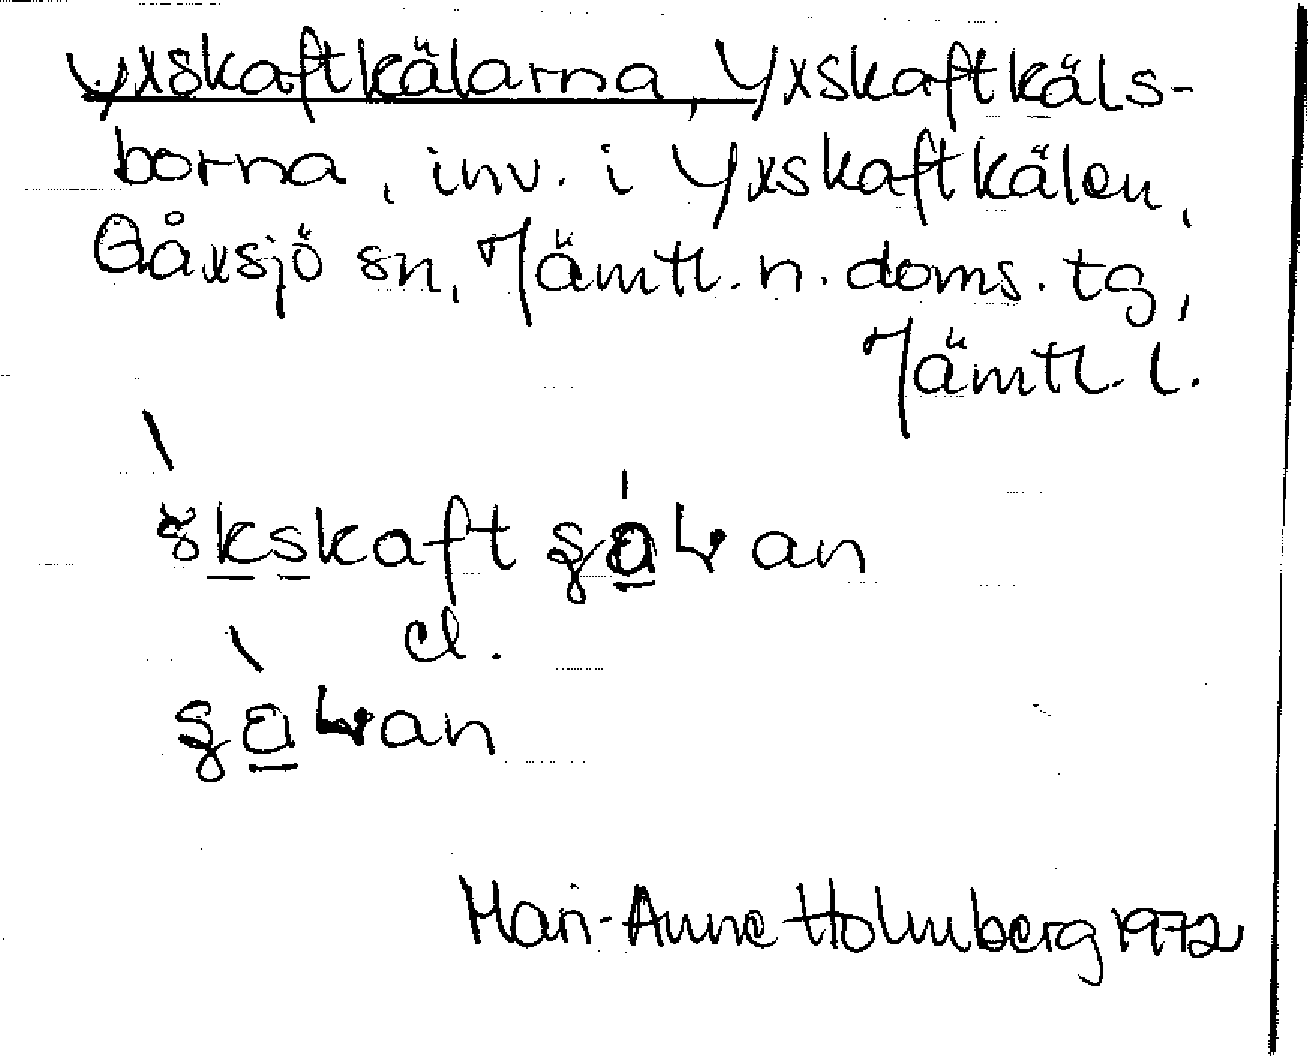 Yxskaftkälarna, Yxskaftkäls-
borna, inv. i Yxskaftkälen,
Gåxsjö sn, Jämtl. n. doms. tg,
Jämtl. l.
el.
Mari-Anne Holmberg 1972